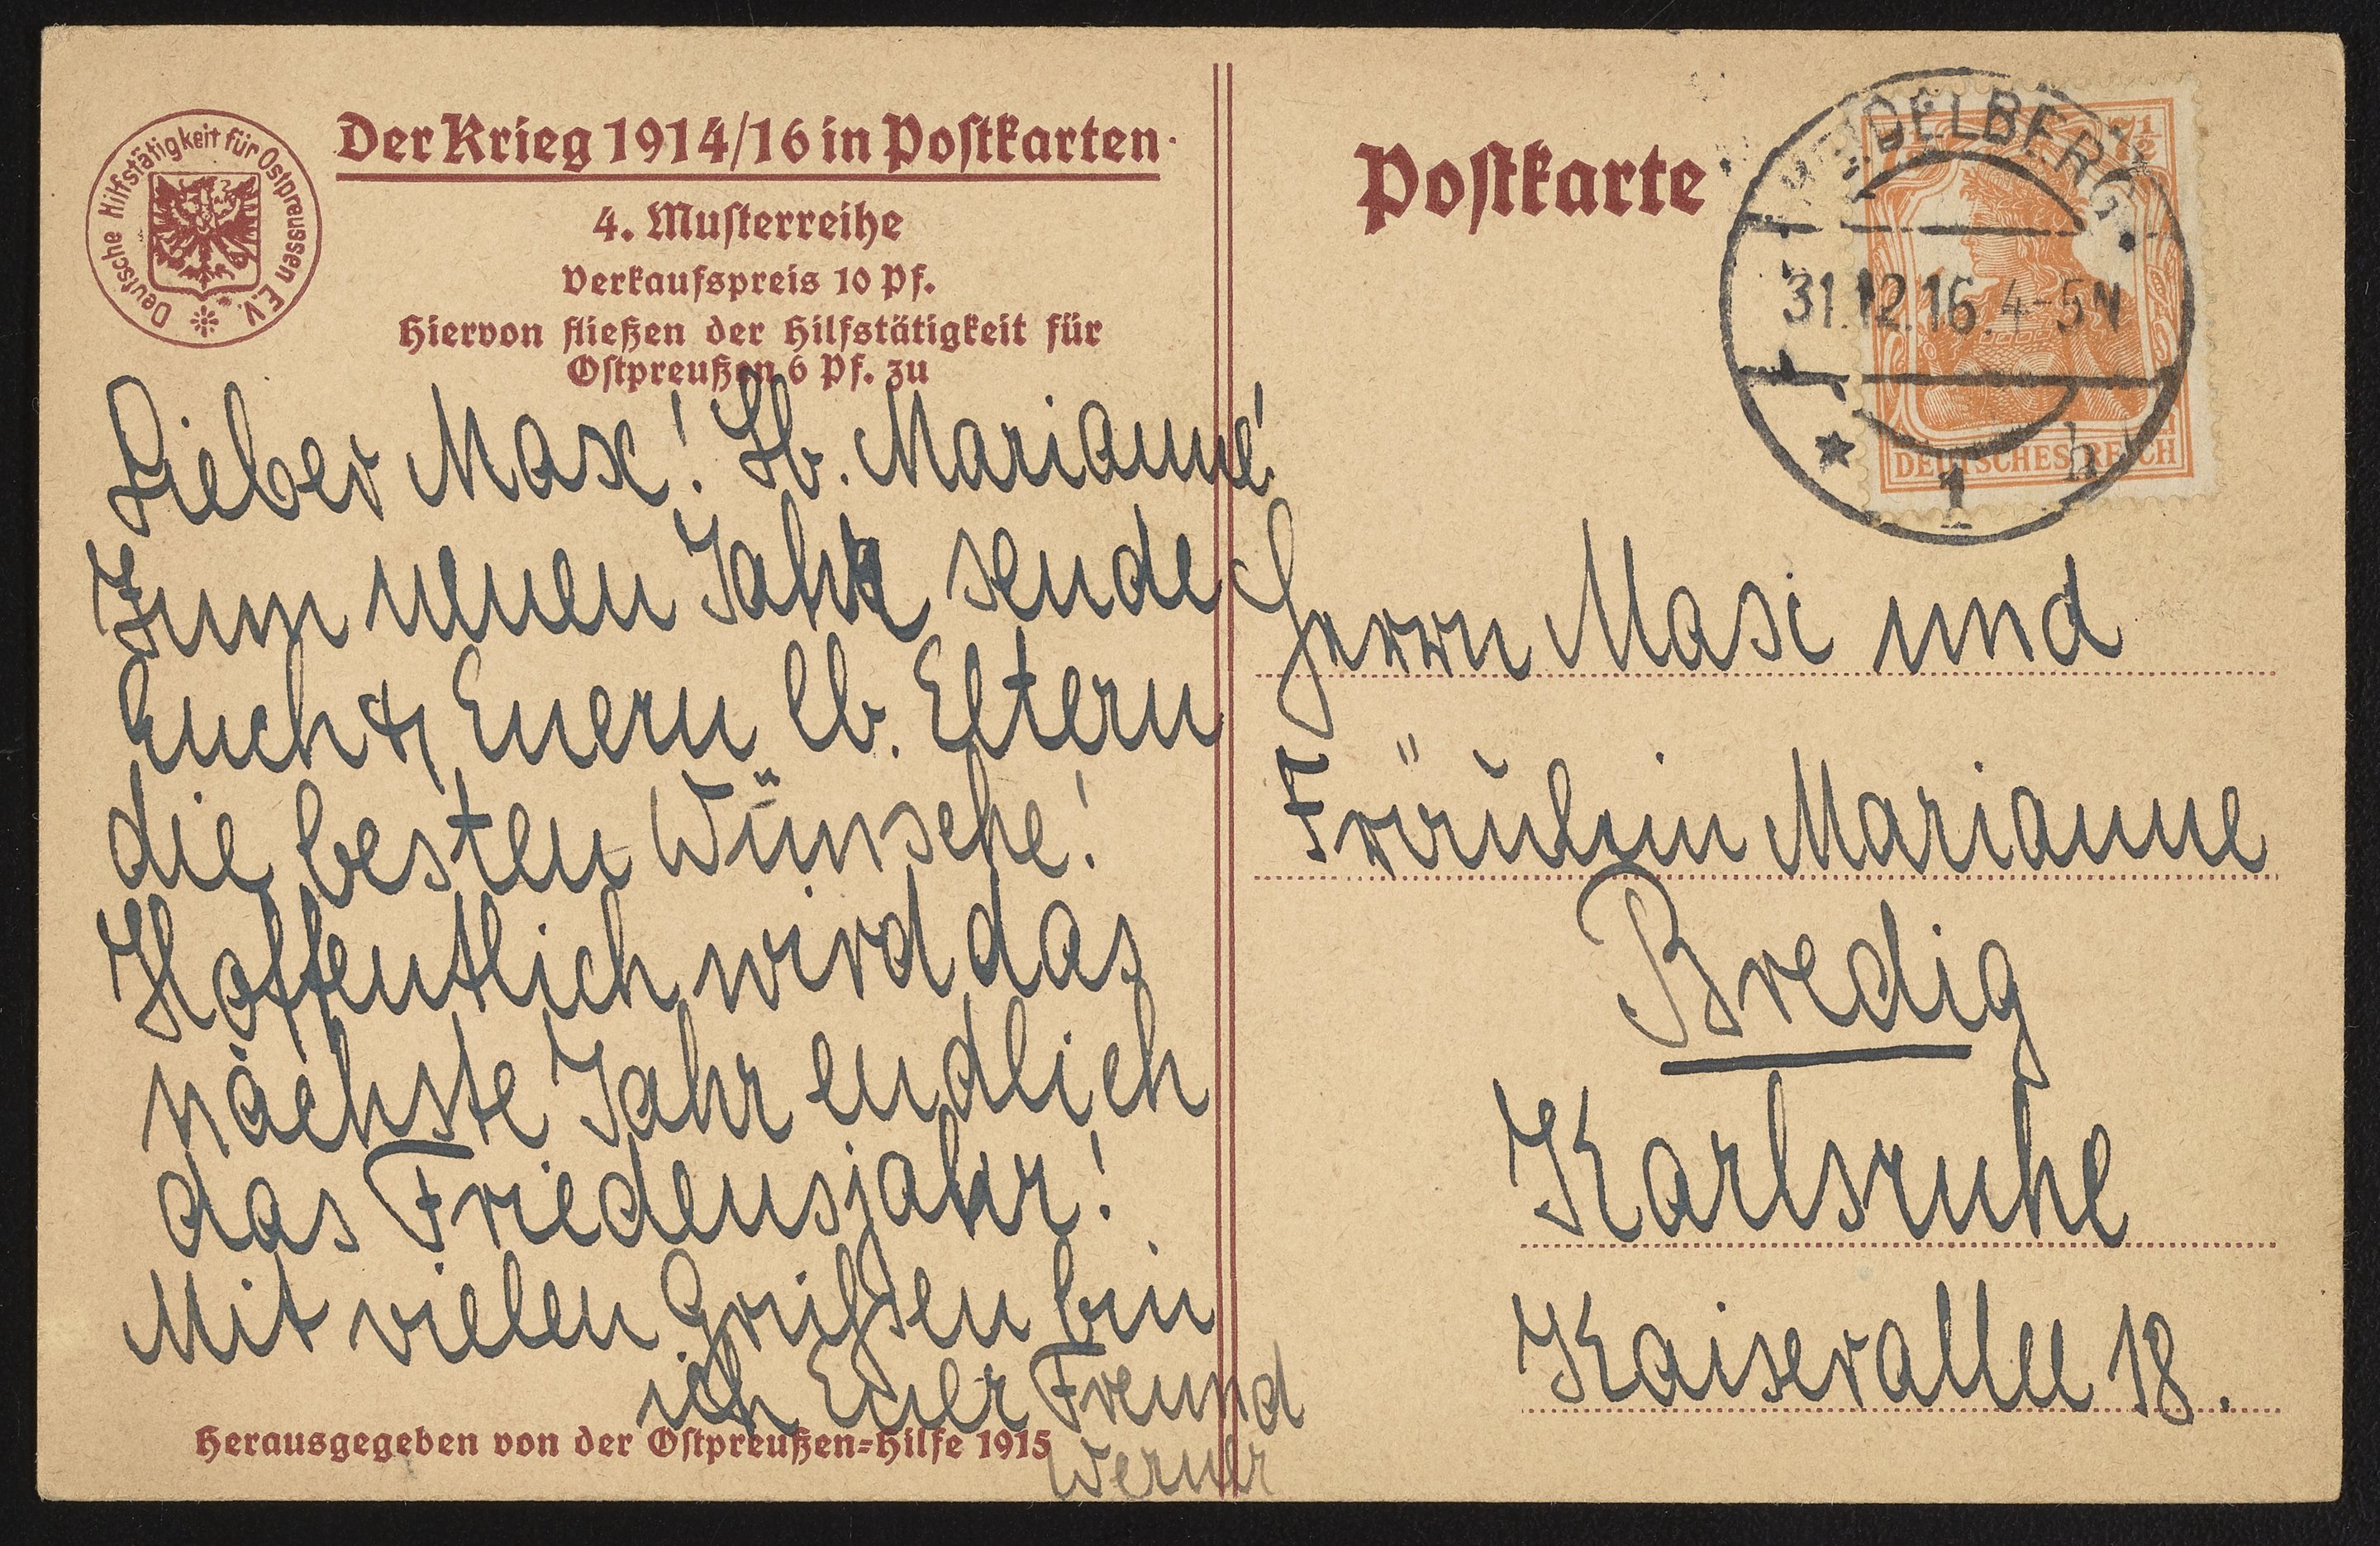 Deutsche Hilfstätigkeit für Ostpreussen E.V.
Der Krieg 1914/16 in Postkarten
4. Musterreihe
Verkaufspreis 10 Pf.
Hiervon fließen der Hilfstätigkeit für
Ostpreußen 6 Pf. zu
Lieber Max! Lb. Marianne!
Zum neuen Jahr sende
Euch & Euern lb. Eltern
die besten Wünsche!
Hoffentlich wird das
nächste Jahr endlich
das Friedensjahr!
Mit vielen Grüßen bin
ich Euer Freund
Werner
Herausgegeben von der Ostpreußen-Hilfe 1915
Postkarte
HEIDELBERG.
31.12.16. 4-5 N
* 1 h
7½
DEUTSCHES REICH
Herrn Max und
Fräulein Marianne
Bredig
Karlsruhe
Kaiserallee 18.